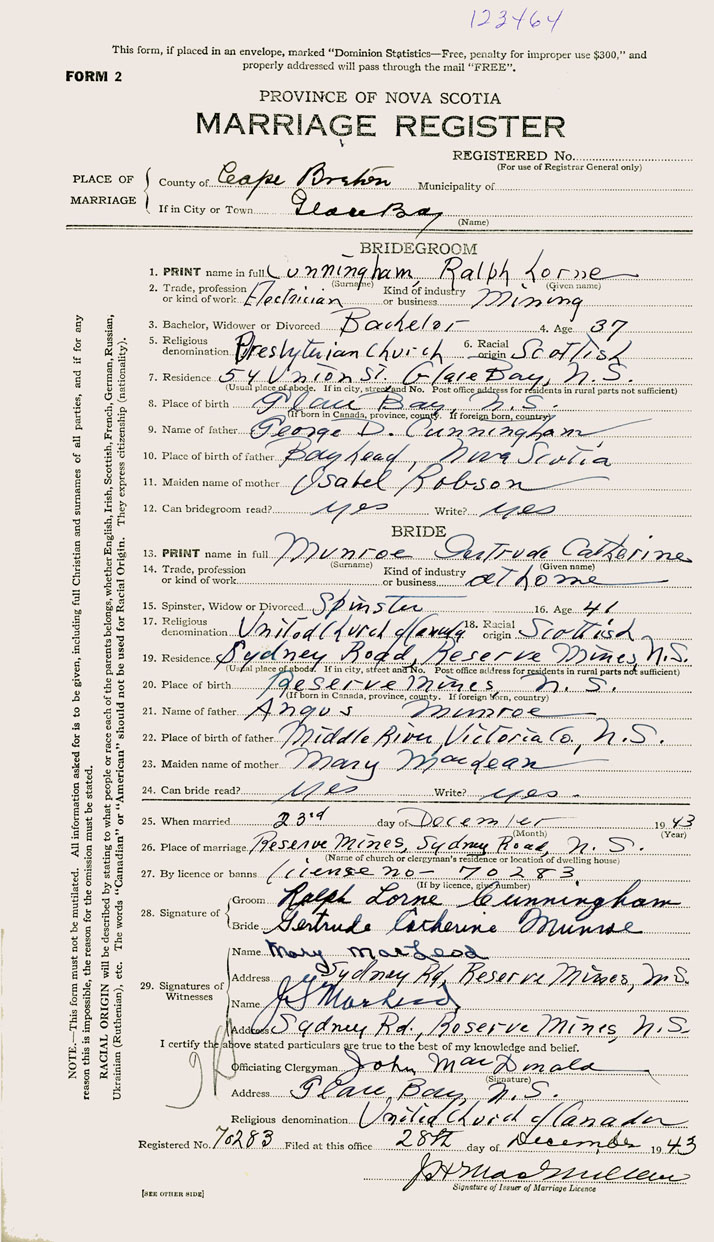 123464
This form, if placed in an envelope, marked "Dominion Statistics—Free, penalty for improper use $300," and
properly addressed will pass through the mail "FREE".
FORM 2
PROVINCE OF NOVA SCOTIA
MARRIAGE REGISTER
REGISTERED No.
(For use of Registrar General only)
PLACE OF MARRIAGE
County of Cape Breton Municipality of
If in City or Town Glace Bay
(Name)
BRIDEGROOM
1. PRINT name in full Cunningham, Ralph Lorne
(Surname) (Given name)
2. Trade, profession or kind of work Electrician Kind of industry or business Mining
3. Bachelor, Widower or Divorced Bachelor 4. Age 37
5. Religious denomination Presbyterian Church 6. Racial origin Scottish
7. Residence 54 Union St. Glace Bay, N.S.
(Usual place of abode. If in city, street and No. Post office address for residents in rural parts not sufficient)
8. Place of birth Glace Bay, N.S.
(If born in Canada, province, county. If foreign born, country)
9. Name of father George D. Cunningham
10. Place of birth of father Bayhead, Nova Scotia
11. Maiden name of mother Isabel Robson
12. Can bridegroom read? yes Write? yes
BRIDE
13. PRINT name in full Munroe Gertrude Catherine
(Surname) (Given name)
14. Trade, profession or kind of work Kind of industry or business at home
15. Spinster, Widow or Divorced Spinster 16. Age 41
17. Religious denomination United Church of Canada 18. Racial origin Scottish
19. Residence Sydney Road, Reserve Mines, N.S.
(Usual place of abode. If in city, street and No. Post office address for residents in rural parts not sufficient)
20. Place of birth Reserve Mines, N.S.
(If born in Canada, province, county. If foreign born, country)
21. Name of father Angus Munroe
22. Place of birth of father Middle River, Victoria Co, N.S.
23. Maiden name of mother Mary MacLean
24. Can bride read? yes Write? yes.
25. When married 23rd day of December 1943
(Month) (Year)
26. Place of marriage Reserve Mines, Sydney Road, N.S.
(Name of church or clergyman's residence or location of dwelling house)
27. By licence or banns license no- 70283
(If by licence, give number)
28. Signature of Groom Ralph Lorne Cunningham
Bride Gertrude Catherine Munroe
29. Signatures of Witnesses
Name Mary MacLeod
Address Sydney Rd, Reserve Mines, N.S.
Name MacLeod
Address Sydney Rd., Reserve Mines, N.S.
I certify the above stated particulars are true to the best of my knowledge and belief.
Officiating Clergyman John MacDonald
(Signature)
Address Glace Bay, N.S.
Religious denomination United Church of Canada
Registered No. 70283 Filed at this office 28th day of December 1943
MacMillan
Signature of Issuer of Marriage Licence
[SEE OTHER SIDE]
NOTE.—This form must not be mutilated. All information asked for is to be given, including full Christian and surnames of all parties, and if for any
reason this is impossible, the reason for the omission must be stated.
RACIAL ORIGIN will be described by stating to what people or race each of the parents belongs, whether English, Irish, Scottish, French, German, Russian,
Ukrainian (Ruthenian), etc. The words "Canadian" or "American" should not be used for Racial Origin. They express citizenship (nationality).